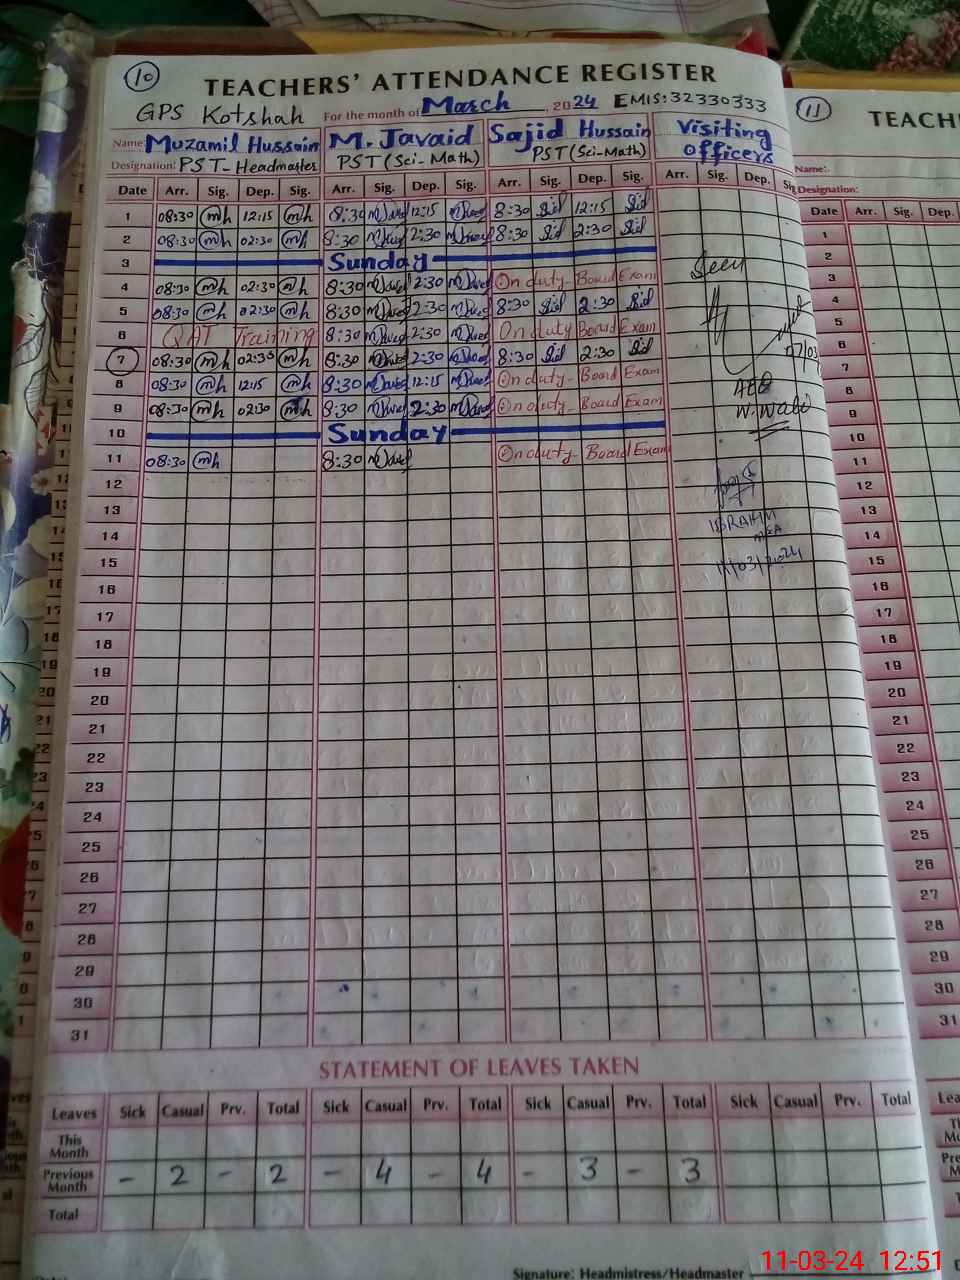 10
TEACHERS' ATTENDANCE REGISTER
GPS Kotshah For the month of March, 2024 EMIS:32330333
Name: Muzamil Hussain M. Javaid Sajid Hussain Visiting officers
Designation: PST-Headmaster PST (Sci-Math) PST (Sci-Math)
Date Arr. Sig. Dep. Sig. Arr. Sig. Dep. Sig. Arr. Sig. Dep. Sig. Arr. Sig. Dep.
1 08:30 mh 12:15 mh 8:30 12:15 8:30 12:15
2 08:30 mh 02:30 mh 8:30 2:30 8:30 2:30
3 Sunday
4 08:30 mh 02:30 mh 8:30 2:30 On duty-Board Exam Seen
5 08:30 mh 02:30 mh 8:30 2:30 8:30 2:30
6 QAT Training 8:30 2:30 On duty Board Exam
7 08:30 mh 02:35 mh 8:30 2:30 8:30 2:30
8 08:30 mh 12:15 mh 8:30 12:15 On duty-Board Exam
9 08:30 mh 02:30 mh 8:30 2:30 On duty-Board Exam
10 Sunday
11 08:30 mh 8:30 On duty-Board Exam
12
13 IBRAHIM
14 MEA
15 11/03/2024
16
17
18
19
20
21
22
23
24
25
26
27
28
29
30
31
STATEMENT OF LEAVES TAKEN
Leaves Sick Casual Prv. Total Sick Casual Prv. Total Sick Casual Prv. Total Sick Casual Prv. Total
This Month
Previous Month - 2 - 2 - 4 - 4 - 3 - 3
Total
Signature: Headmistress/Headmaster
11-03-24 12:51
11
Name:
Designation:
Date Arr. Sig. Dep.
1
2
3
4
5
6
7
8
9
10
11
12
13
14
15
16
17
18
19
20
21
22
23
24
25
26
27
28
29
30
31